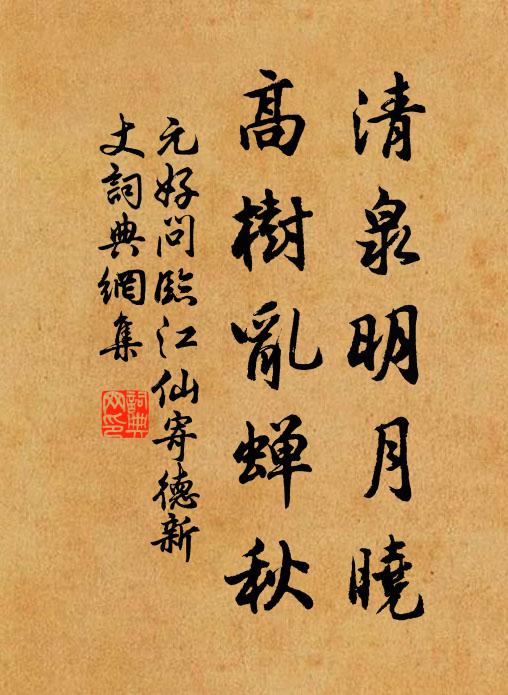 清泉明月曉
高樹亂蟬秋
元好問臨江仙寄德新
丈詞典網集
詞典網印